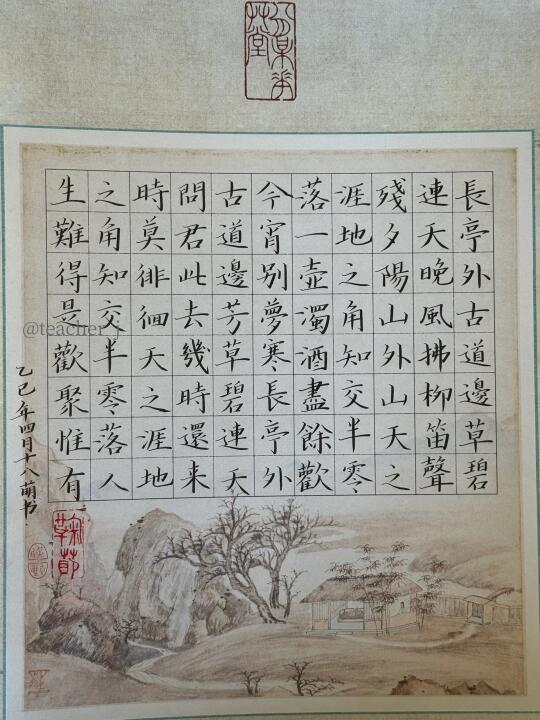 長亭外古道邊草碧
連天晚風拂柳笛聲
殘夕陽山外山天之
涯地之角知交半零
落一壺濁酒盡餘歡
今宵別夢寒長亭外
古道邊芳草碧連天
問君此去幾時還来
時莫徘徊天之涯地
之角知交半零落人
生難得是歡聚惟有
乙巳年四月十八萌书
@teacher